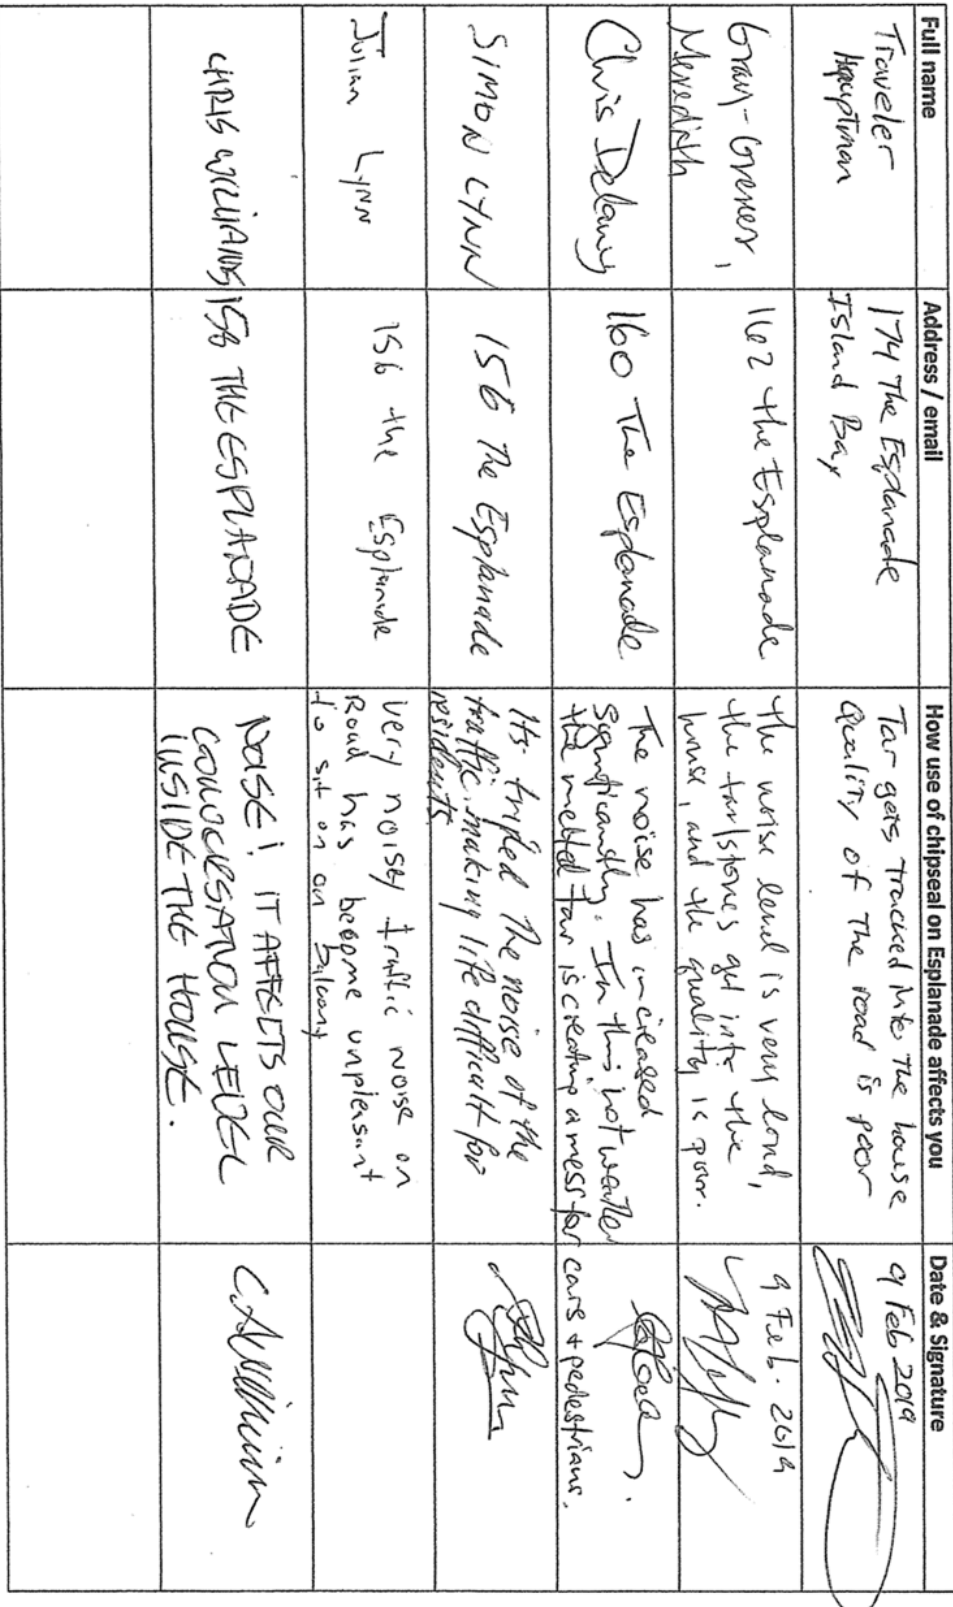 Full name
Address / email
How use of chipseal on Esplanade affects you
Date & Signature
Traveler
Hauptman
174 The Esplanade
Island Bay
Tar gets tracked into the house
Quality of the road is poor
9 Feb 2019
Gray-Grener,
Meredith
162 the Esplanade
the noise level is very loud,
the tar/stones get into the
house, and the quality is poor.
9 Feb. 2019
Chris Delany
160 The Esplanade
The noise has increased
significantly. In this hot weather
the melted tar is creating a mess for cars + pedestrians.
SIMON LYNN
156 The Esplanade
Its tripled the noise of the
traffic. making life difficult for
residents.
Julian Lynn
156 the Esplanade
very noisy traffic noise on
Road has become unpleasant
to sit on on balcony
CHRIS WILLIAMS
156 THE ESPLANADE
NOISE! IT AFFECTS OUR
CONVERSATION LEVEL
INSIDE THE HOUSE.